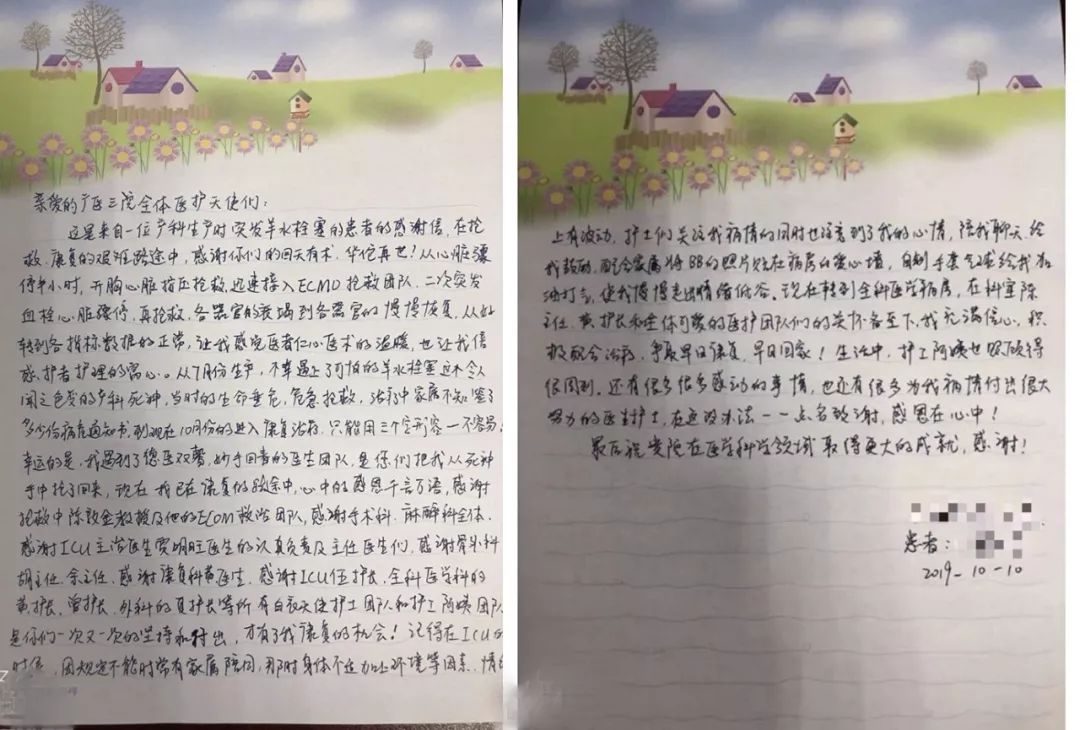 亲爱的广医三院全体医护天使们：
这是来自一位产科生产时突发羊水栓塞的患者的感谢信，在抢
救、康复的艰难路途中，感谢你们的回天有术，华佗再世！从心脏骤
停半小时，开胸心脏挤压抢救，迅速接入ECMO抢救团队，二次突发
血栓心脏骤停，再抢救，各器官的衰竭到各器官的慢慢恢复，从好
转到各指标数据的正常，让我感觉医者仁心医术的温暖，也让我信
感护者护理的窝心。从7月份生产，不幸遇上了可怕的羊水栓塞这个令人
闻之色变的产科死神，当时的生命垂危，危急抢救，治疗中家属不知签了
多少份病危通知书，到现在10月份的进入康复治疗，只能用三个字形容一不容易！
幸运的是，我遇到了德医双馨，妙手回春的医生团队，是您们把我从死神
手中抢了回来，现在我已在康复的路途中，心中的感恩千言万语，感谢
抢救中陈敦金教授及他的ECOM救治团队，感谢手术科、麻醉科全体、
感谢ICU主治医生贾明旺医生的认真负责及主任医生们，感谢骨外科
胡主任、余主任、感谢康复科黄医生、感谢ICU伍护长、全科医学科的
黄护长、曾护长、外科的夏护长等所有白衣天使护士团队和护工阿姨团队
是你们一次又一次的坚持和付出，才有了我康复的机会！记得在ICU的
时候，因规定不能时常有家属陪同，那时身体不适加上环境等因素，情
上有波动，护士们关注我病情的同时也注意到了我的心情，陪我聊天、给
我鼓励、配合家属将BB的照片贴在病房的爱心墙，自制手套气球给我加
油打气，使我慢慢走出情绪低谷。现在转到全科医学病房，在科室陈
主任、黄护长和全体可爱的医护团队们的关怀备至下，我充满信心，积
极配合治疗，争取早日康复，早日回家！生活中，护工阿姨也照顾得
很周到，还有很多很多感动的事情，也还有很多为我病情付出很大
努力的医生护士，在这没办法一一点名致谢，感恩在心中！
最后祝贵院在医学科学领域取得更大的成就，感谢！
患者：
2019-10-10